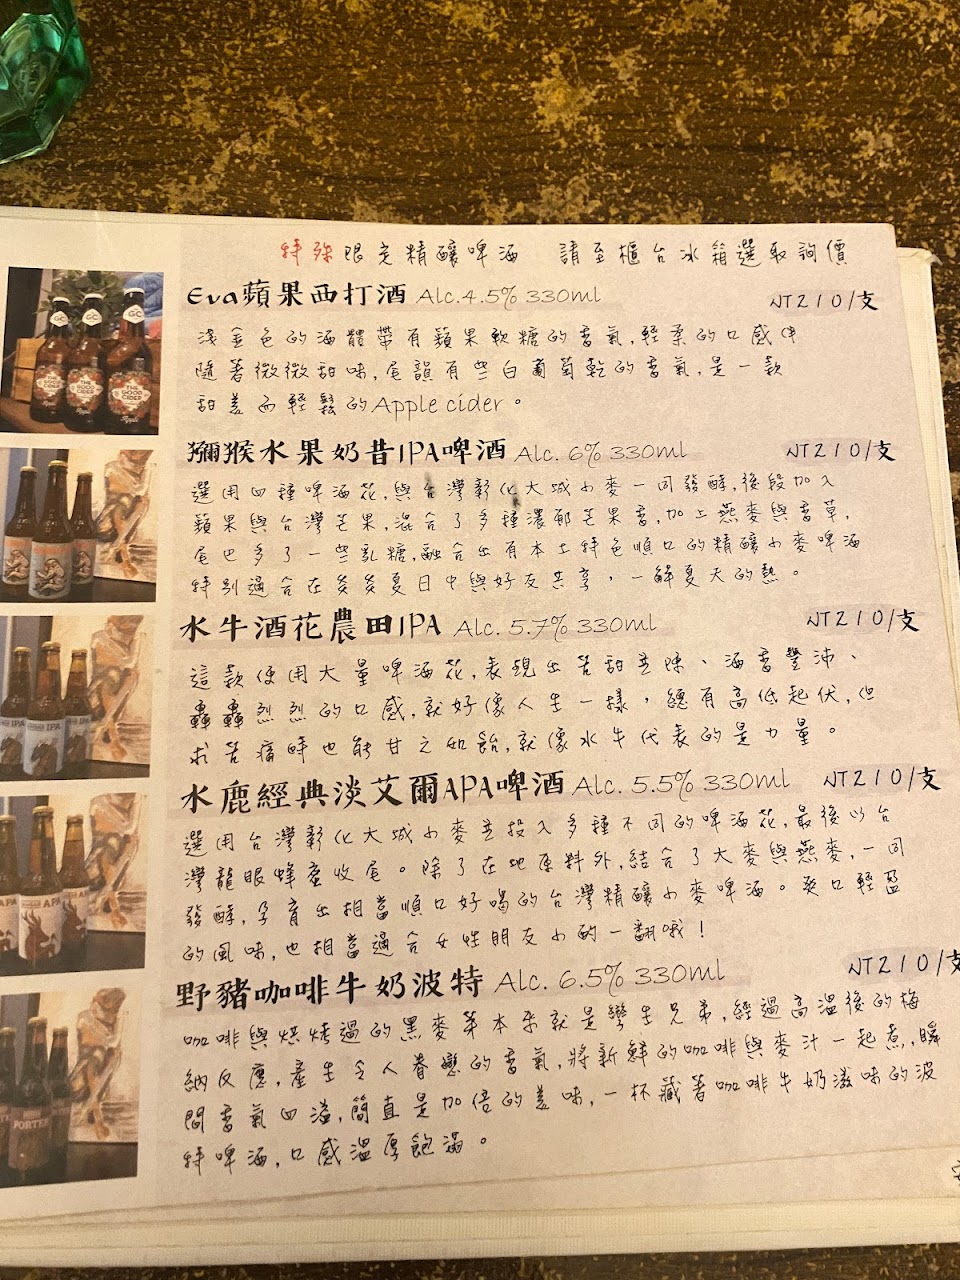 特殊限定精釀啤酒 請至櫃台冰箱選取詢價
Eva蘋果西打酒 Alc.4.5% 330ml NT210/支
淺金色的酒體帶有蘋果軟糖的香氣,輕柔的口感中
隨著微微甜味,尾韻有些白葡萄乾的香氣,是一款
甜美而輕鬆的Apple cider。
獼猴水果奶昔IPA啤酒 Alc. 6% 330ml NT210/支
選用四種啤酒花,與台灣彰化大城小麥一同發酵,後段加入
蘋果與台灣芒果,混合了多種濃郁芒果香,加上燕麥與香草,
尾巴多了一些乳糖,融合出有本土特色順口的精釀小麥啤酒
特別適合在炎炎夏日中與好友共享,一解夏天的熱。
水牛酒花農田IPA Alc. 5.7% 330ml NT210/支
這款使用大量啤酒花,表現出苦甜並陳、酒香豐沛、
轟轟烈烈的口感,就好像人生一樣,總有高低起伏,但
求苦痛時也能甘之如飴,就像水牛代表的是力量。
水鹿經典淡艾爾APA啤酒 Alc. 5.5% 330ml NT210/支
選用台灣彰化大城小麥並投入多種不同的啤酒花,最後以台
灣龍眼蜂蜜收尾。除了在地原料外,結合了大麥與燕麥,一同
發酵,孕育出相當順口好喝的台灣精釀小麥啤酒。爽口輕盈
的風味,也相當適合女性朋友小酌一翻哦!
野豬咖啡牛奶波特 Alc. 6.5% 330ml NT210/支
咖啡與烘烤過的黑麥芽本來就是孿生兄弟,經過高溫後的梅
納反應,產生令人眷戀的香氣,將新鮮的咖啡與麥汁一起煮,瞬
間香氣四溢,簡直是加倍的美味,一杯藏著咖啡牛奶滋味的波
特啤酒,口感溫厚飽滿。
GC
THE GOOD CIDER
IPA
APA
PORTER